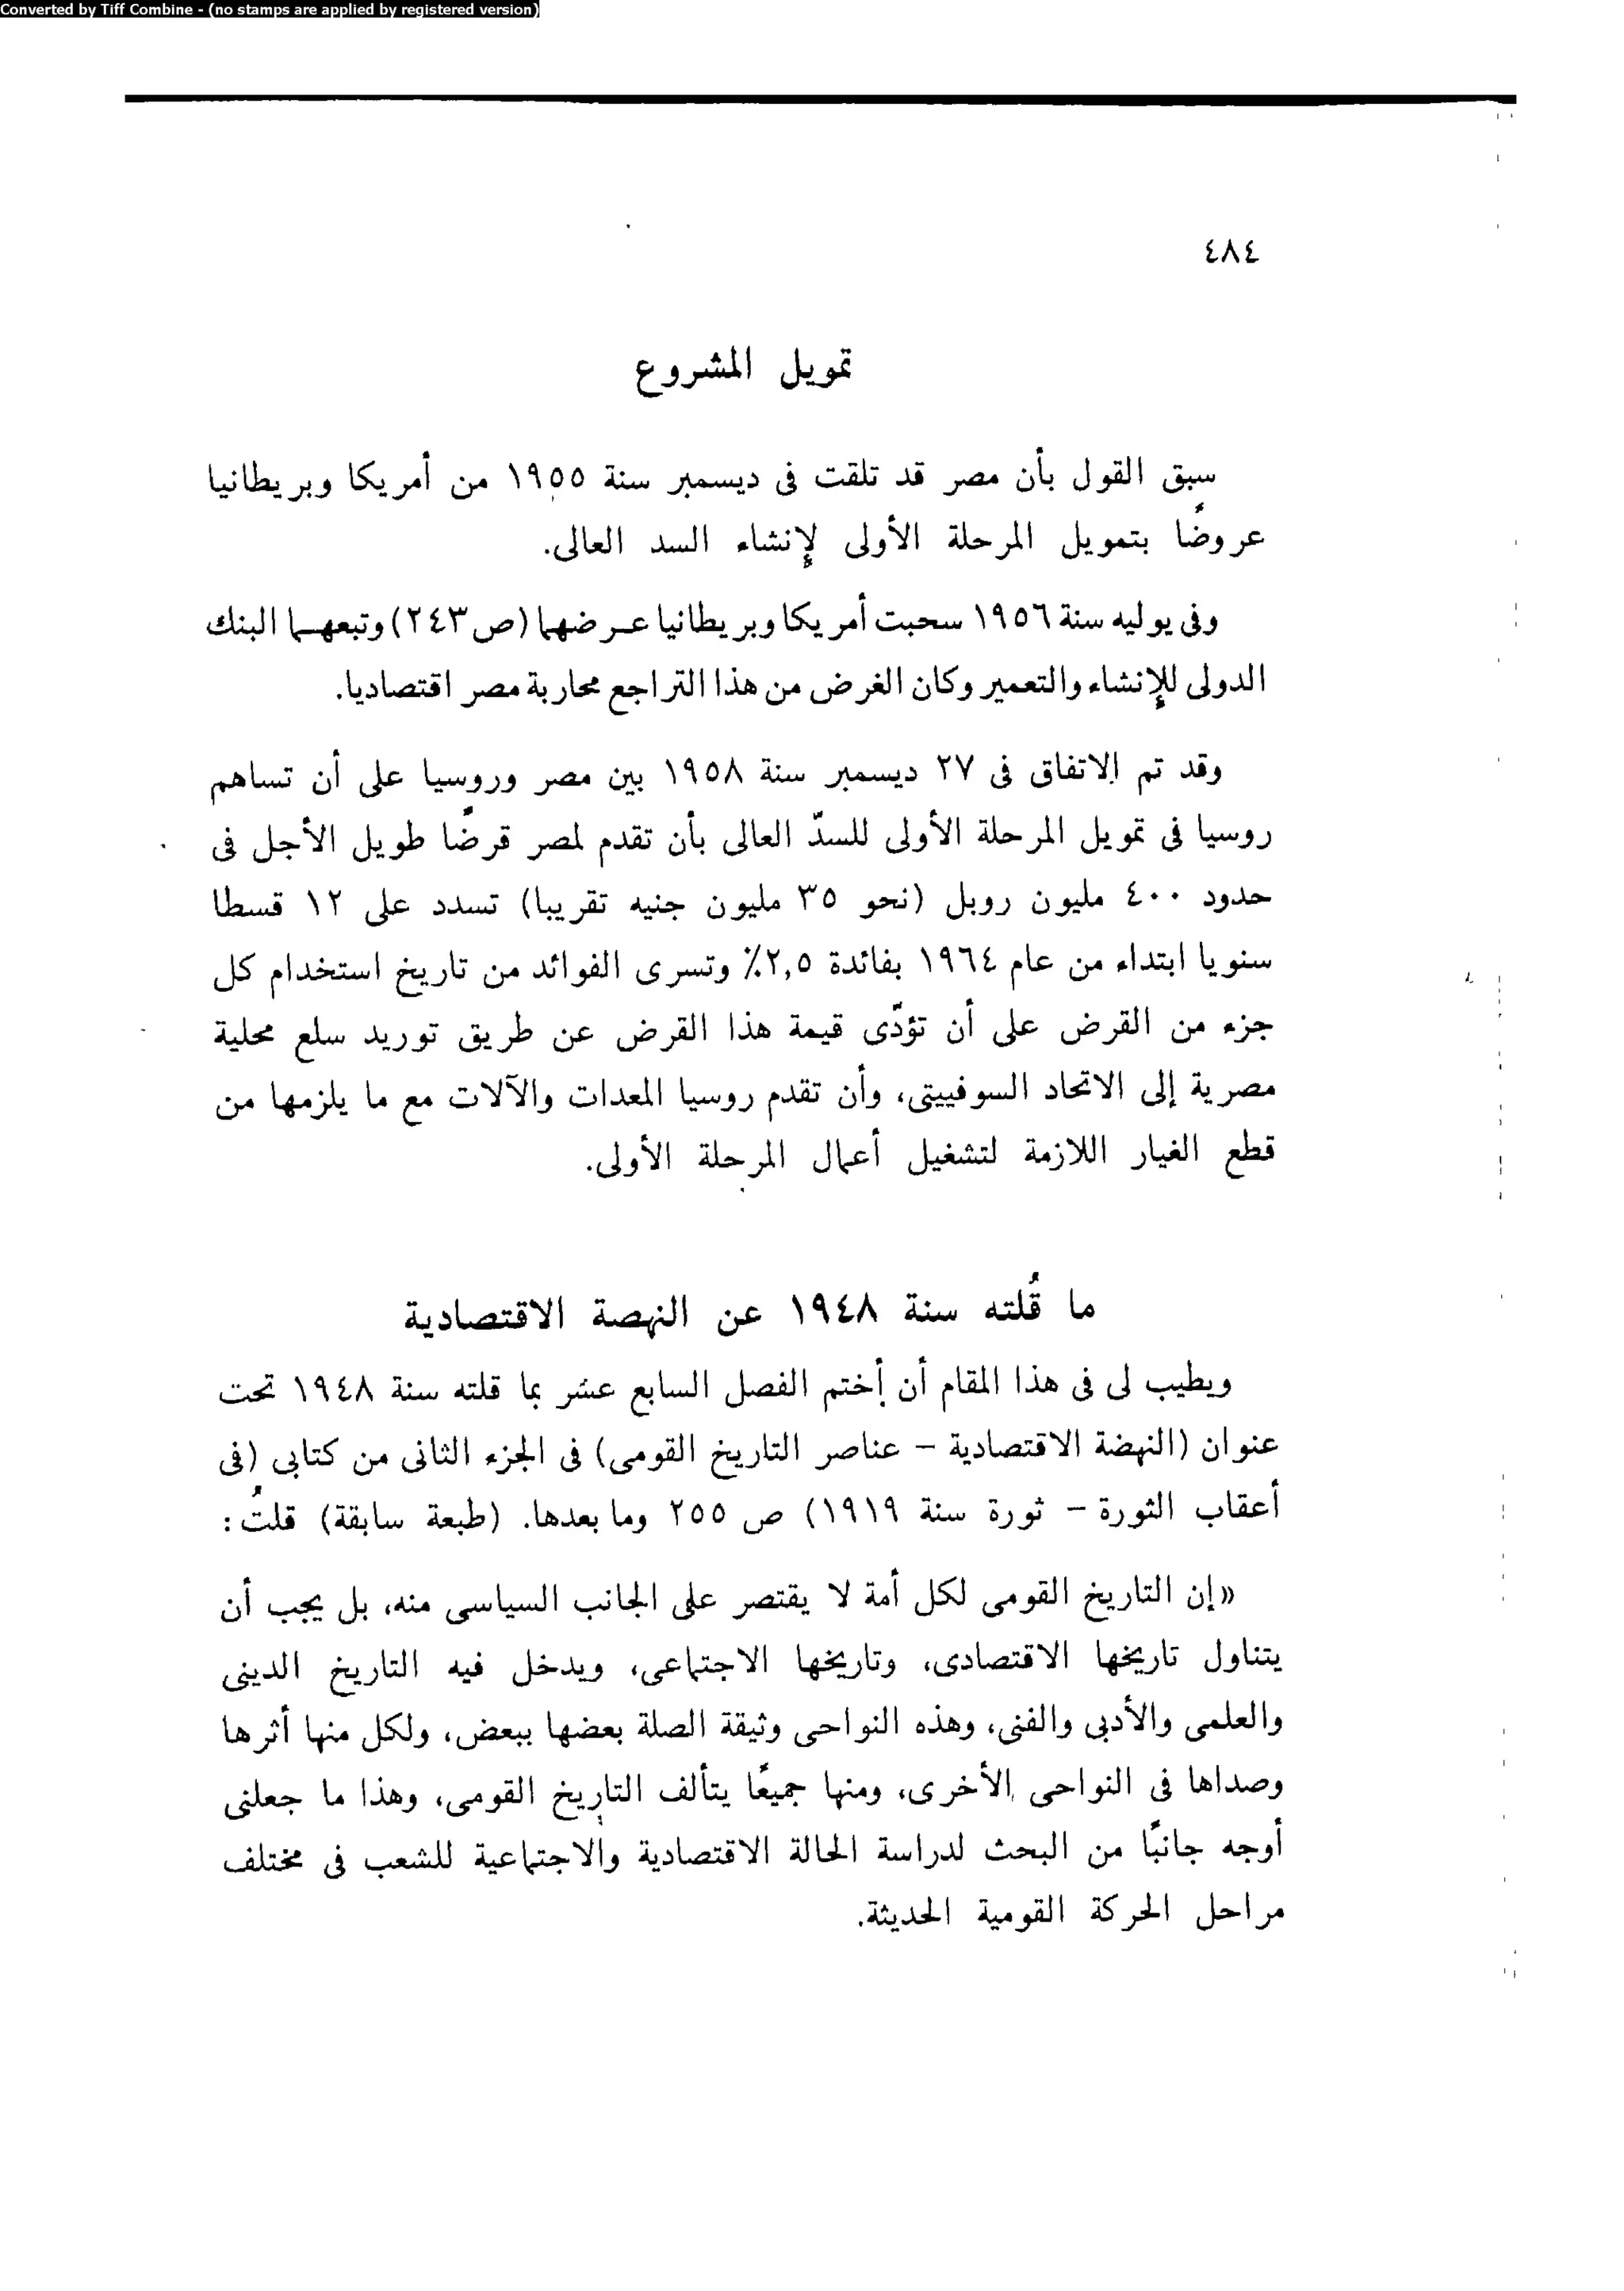 Converted by Tiff Combine - (no stamps are applied by registered version)
٤٨٤
تمويل المشروع
سبق القول بأن مصر قد تلقت فى ديسمبر سنة ١٩٥٥ من أمريكا وبريطانيا
عروضًا بتمويل المرحلة الأولى لإنشاء السد العالى.
وفى يوليه سنة ١٩٥٦ سحبت أمريكا وبريطانيا عرضها (ص ٢٤٣) وتبعهما البنك
الدولى للإنشاء والتعمير وكان الغرض من هذا التراجع محاربة مصر اقتصاديا.
وقد تم الاتفاق فى ٢٧ ديسمبر سنة ١٩٥٨ بين مصر وروسيا على أن تساهم
روسيا فى تمويل المرحلة الأولى للسدّ العالى بأن تقدم لمصر قرضًا طويل الأجل فى
حدود ٤٠٠ مليون روبل (نحو ٣٥ مليون جنيه تقريبا) تسدد على ١٢ قسطا
سنويا ابتداء من عام ١٩٦٤ بفائدة ٢,٥٪ وتسرى الفوائد من تاريخ استخدام كل
جزء من القرض على أن تؤدّى قيمة هذا القرض عن طريق توريد سلع محلية
مصرية إلى الاتحاد السوفييتى، وأن تقدم روسيا المعدات والآلات مع ما يلزمها من
قطع الغيار اللازمة لتشغيل أعمال المرحلة الأولى.
ما قُلته سنة ١٩٤٨ عن النهصة الاقتصادية
ويطيب لى فى هذا المقام أن أختم الفصل السابع عشر بما قلته سنة ١٩٤٨ تحت
عنوان (النهضة الاقتصادية – عناصر التاريخ القومى) فى الجزء الثانى من كتابى (فى
أعقاب الثورة – ثورة سنة ١٩١٩) ص ٢٥٥ وما بعدها. (طبعة سابقة) قلتُ :
«إن التاريخ القومى لكل أمة لا يقتصر على الجانب السياسى منه، بل يجب أن
يتناول تاريخها الاقتصادى، وتاريخها الاجتماعى، ويدخل فيه التاريخ الدينى
والعلمى والأدبى والفنى، وهذه النواحى وثيقة الصلة بعضها ببعض، ولكل منها أثرها
وصداها فى النواحى الأخرى، ومنها جميعًا يتألف التاريخ القومى، وهذا ما جعلنى
أوجه جانبًا من البحث لدراسة الحالة الاقتصادية والاجتماعية للشعب فى مختلف
مراحل الحركة القومية الحديثة.